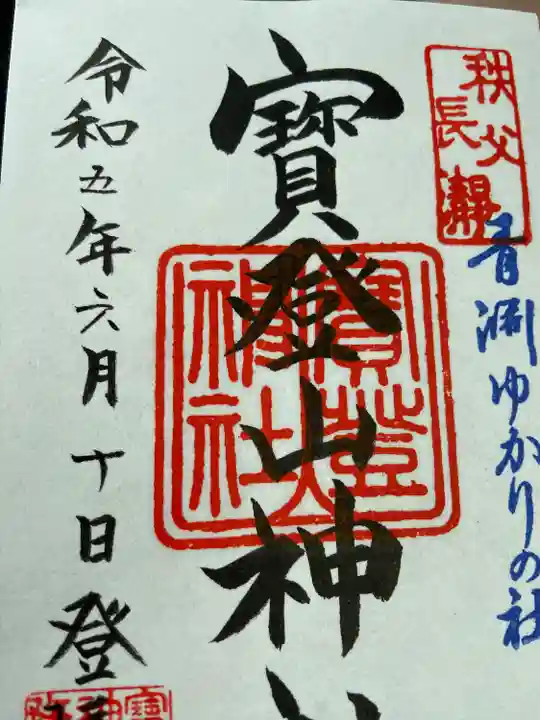 秩父
長瀞
青淵ゆかりの社
寳登山神
寳登
山神
社
令和五年六月十日登